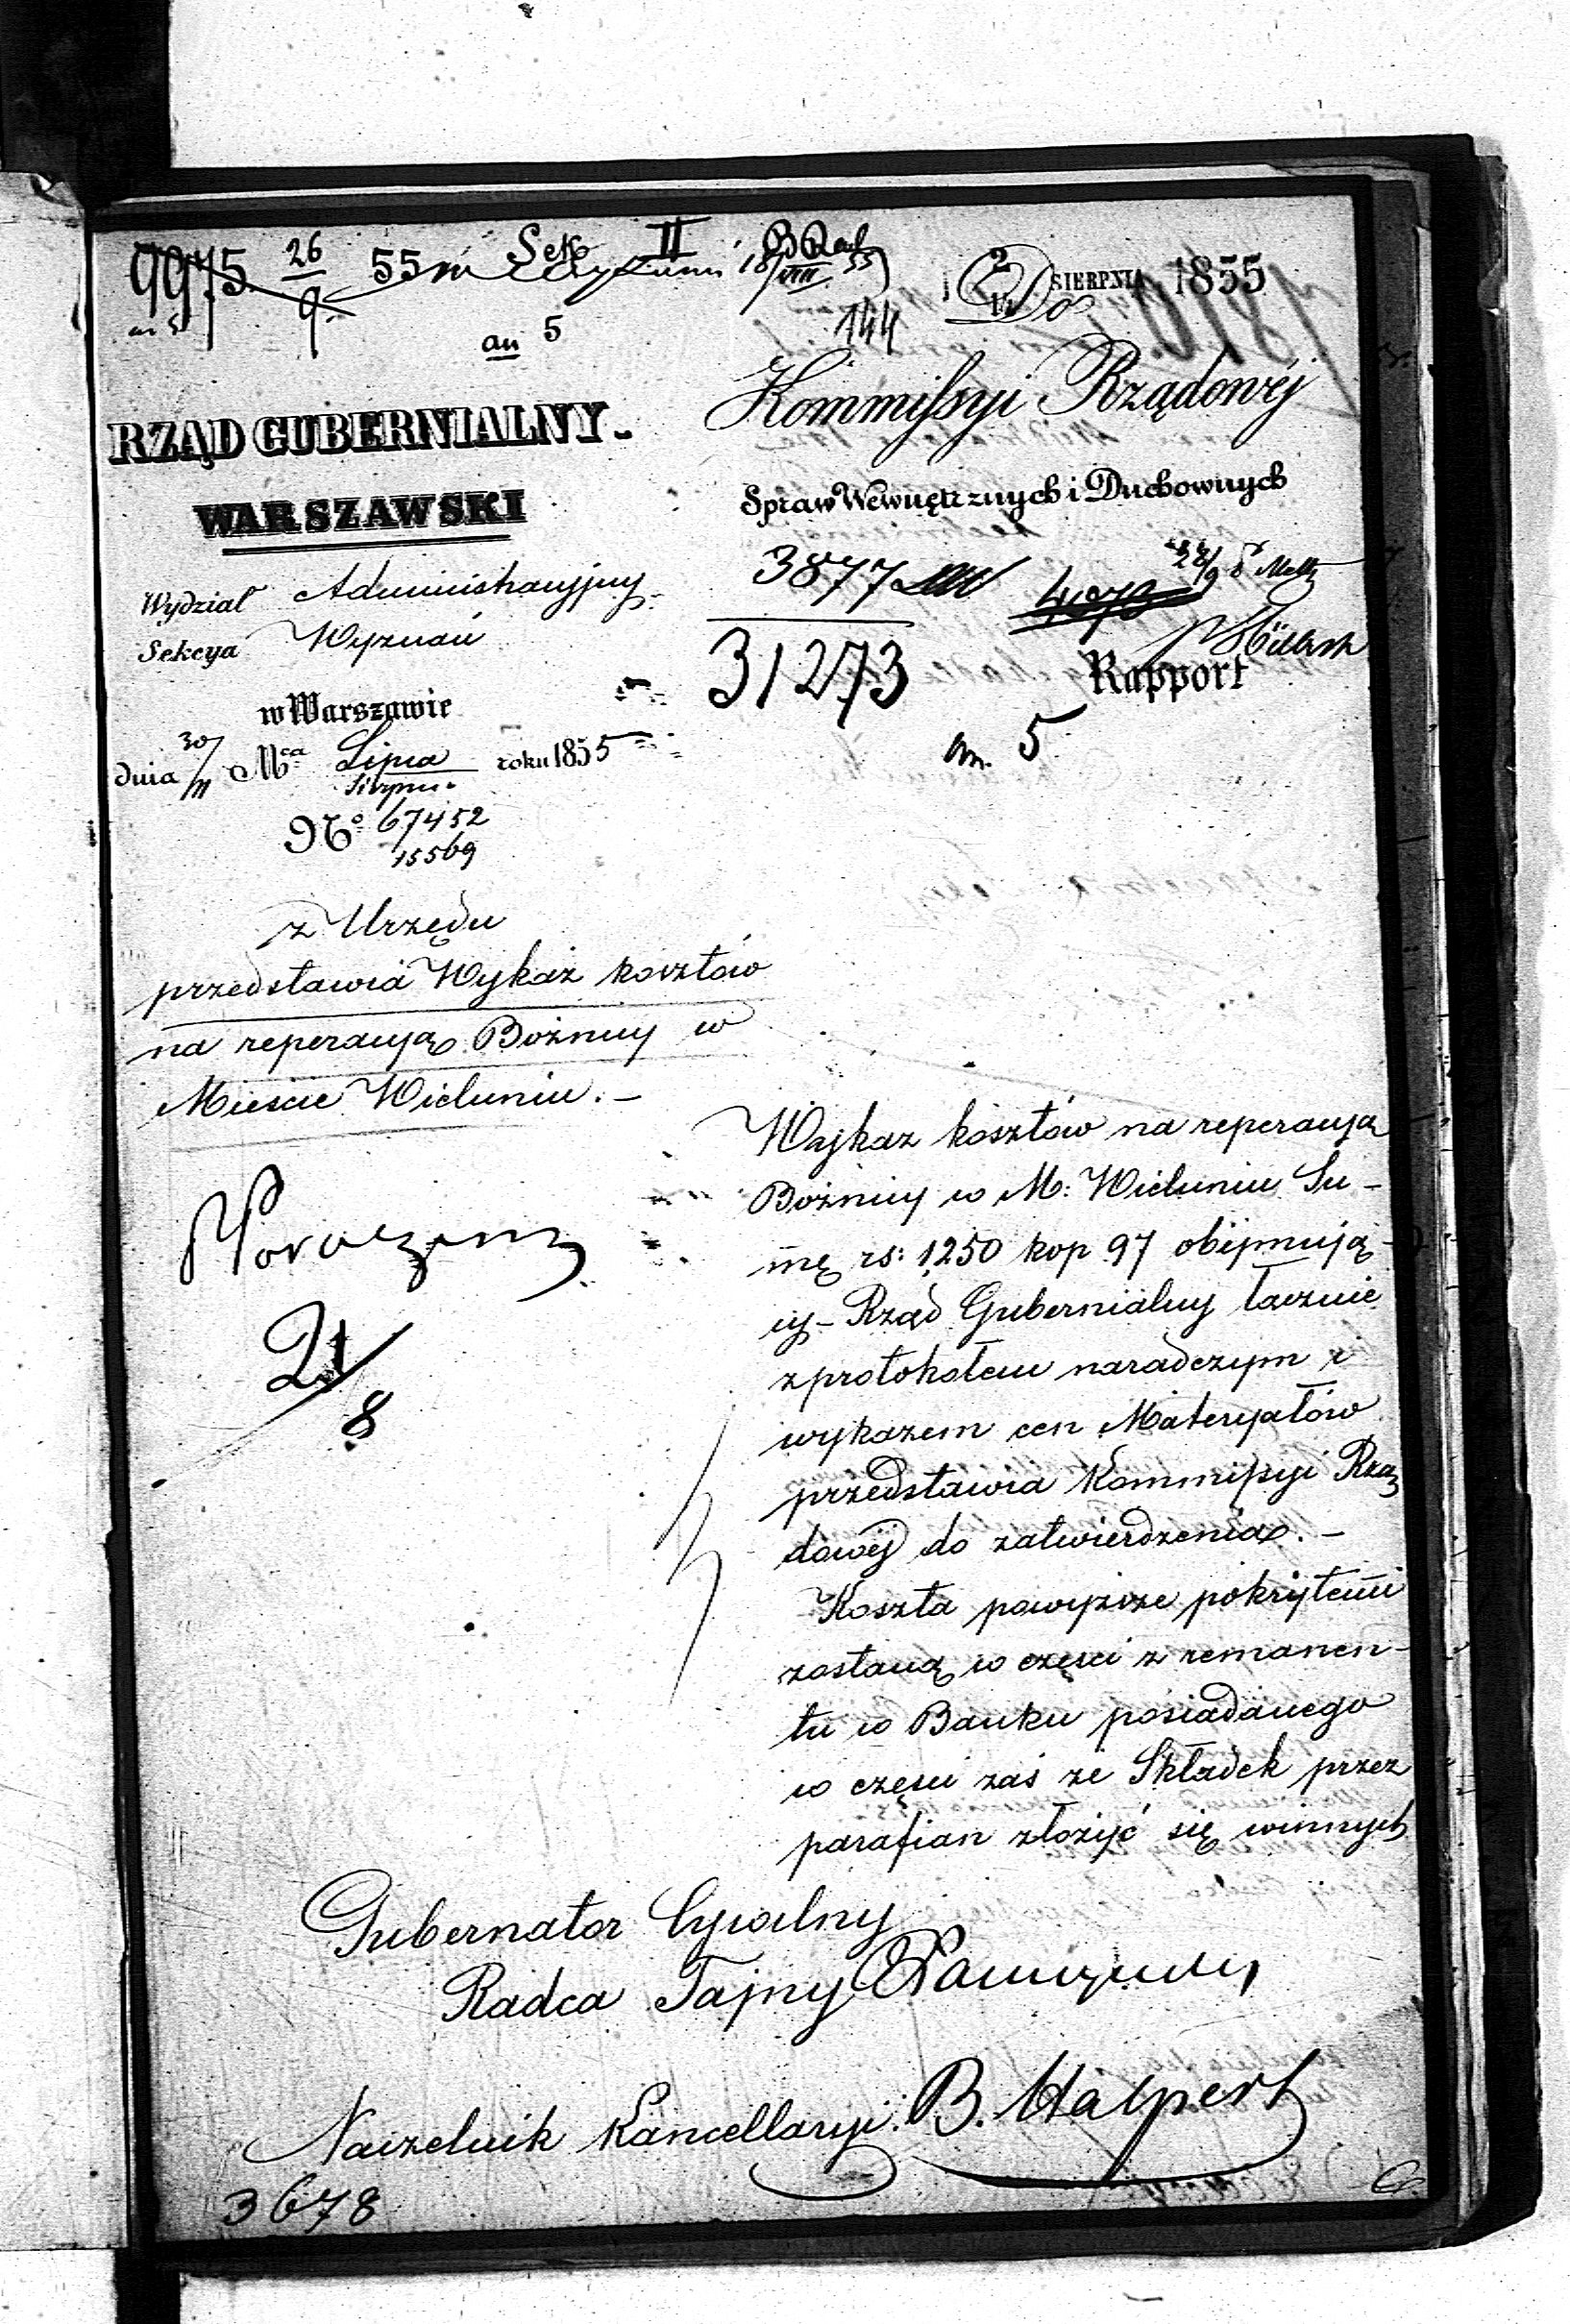 9975 26/9 55 Sek II 18/VIII 55
an 5
144
2/14 SIERPNIA 1855
Do
Kommissyi Rządowéj
Spraw Wewnętrznych i Duchownych
RZĄD GUBERNIALNY
WARSZAWSKI
Wydział Administracyjny
Sekcya Wyznań
w Warszawie
dnia 30/11 Mca Lipca/Sierpnia roku 1855
No 67452
15569
3877
31273
Rapport
an. 5
z Urzędu
przedstawia Wykaz kosztów
na reperacyą Bożnicy w
Mieście Wieluniu. –
21/8
Wykaz kosztów na reperacyą
Bożnicy w M: Wieluniu Su-
mę rs: 1250 kop 97 obejmują-
cy – Rząd Gubernialny łącznie
z protokołem naradczym i
wykazem cen Materyałów
przedstawia Kommissyi Rzą
dowéj do zatwierdzenia. –
Koszta powyższe pokrytemi
zostaną w części z remanen-
tu w Banku posiadanego
w części zaś ze Składek przez
parafian złożyć się winnych
Gubernator Cywilny
Radca Tajny
Naczelnik Kancellaryi B. Halpert
3678